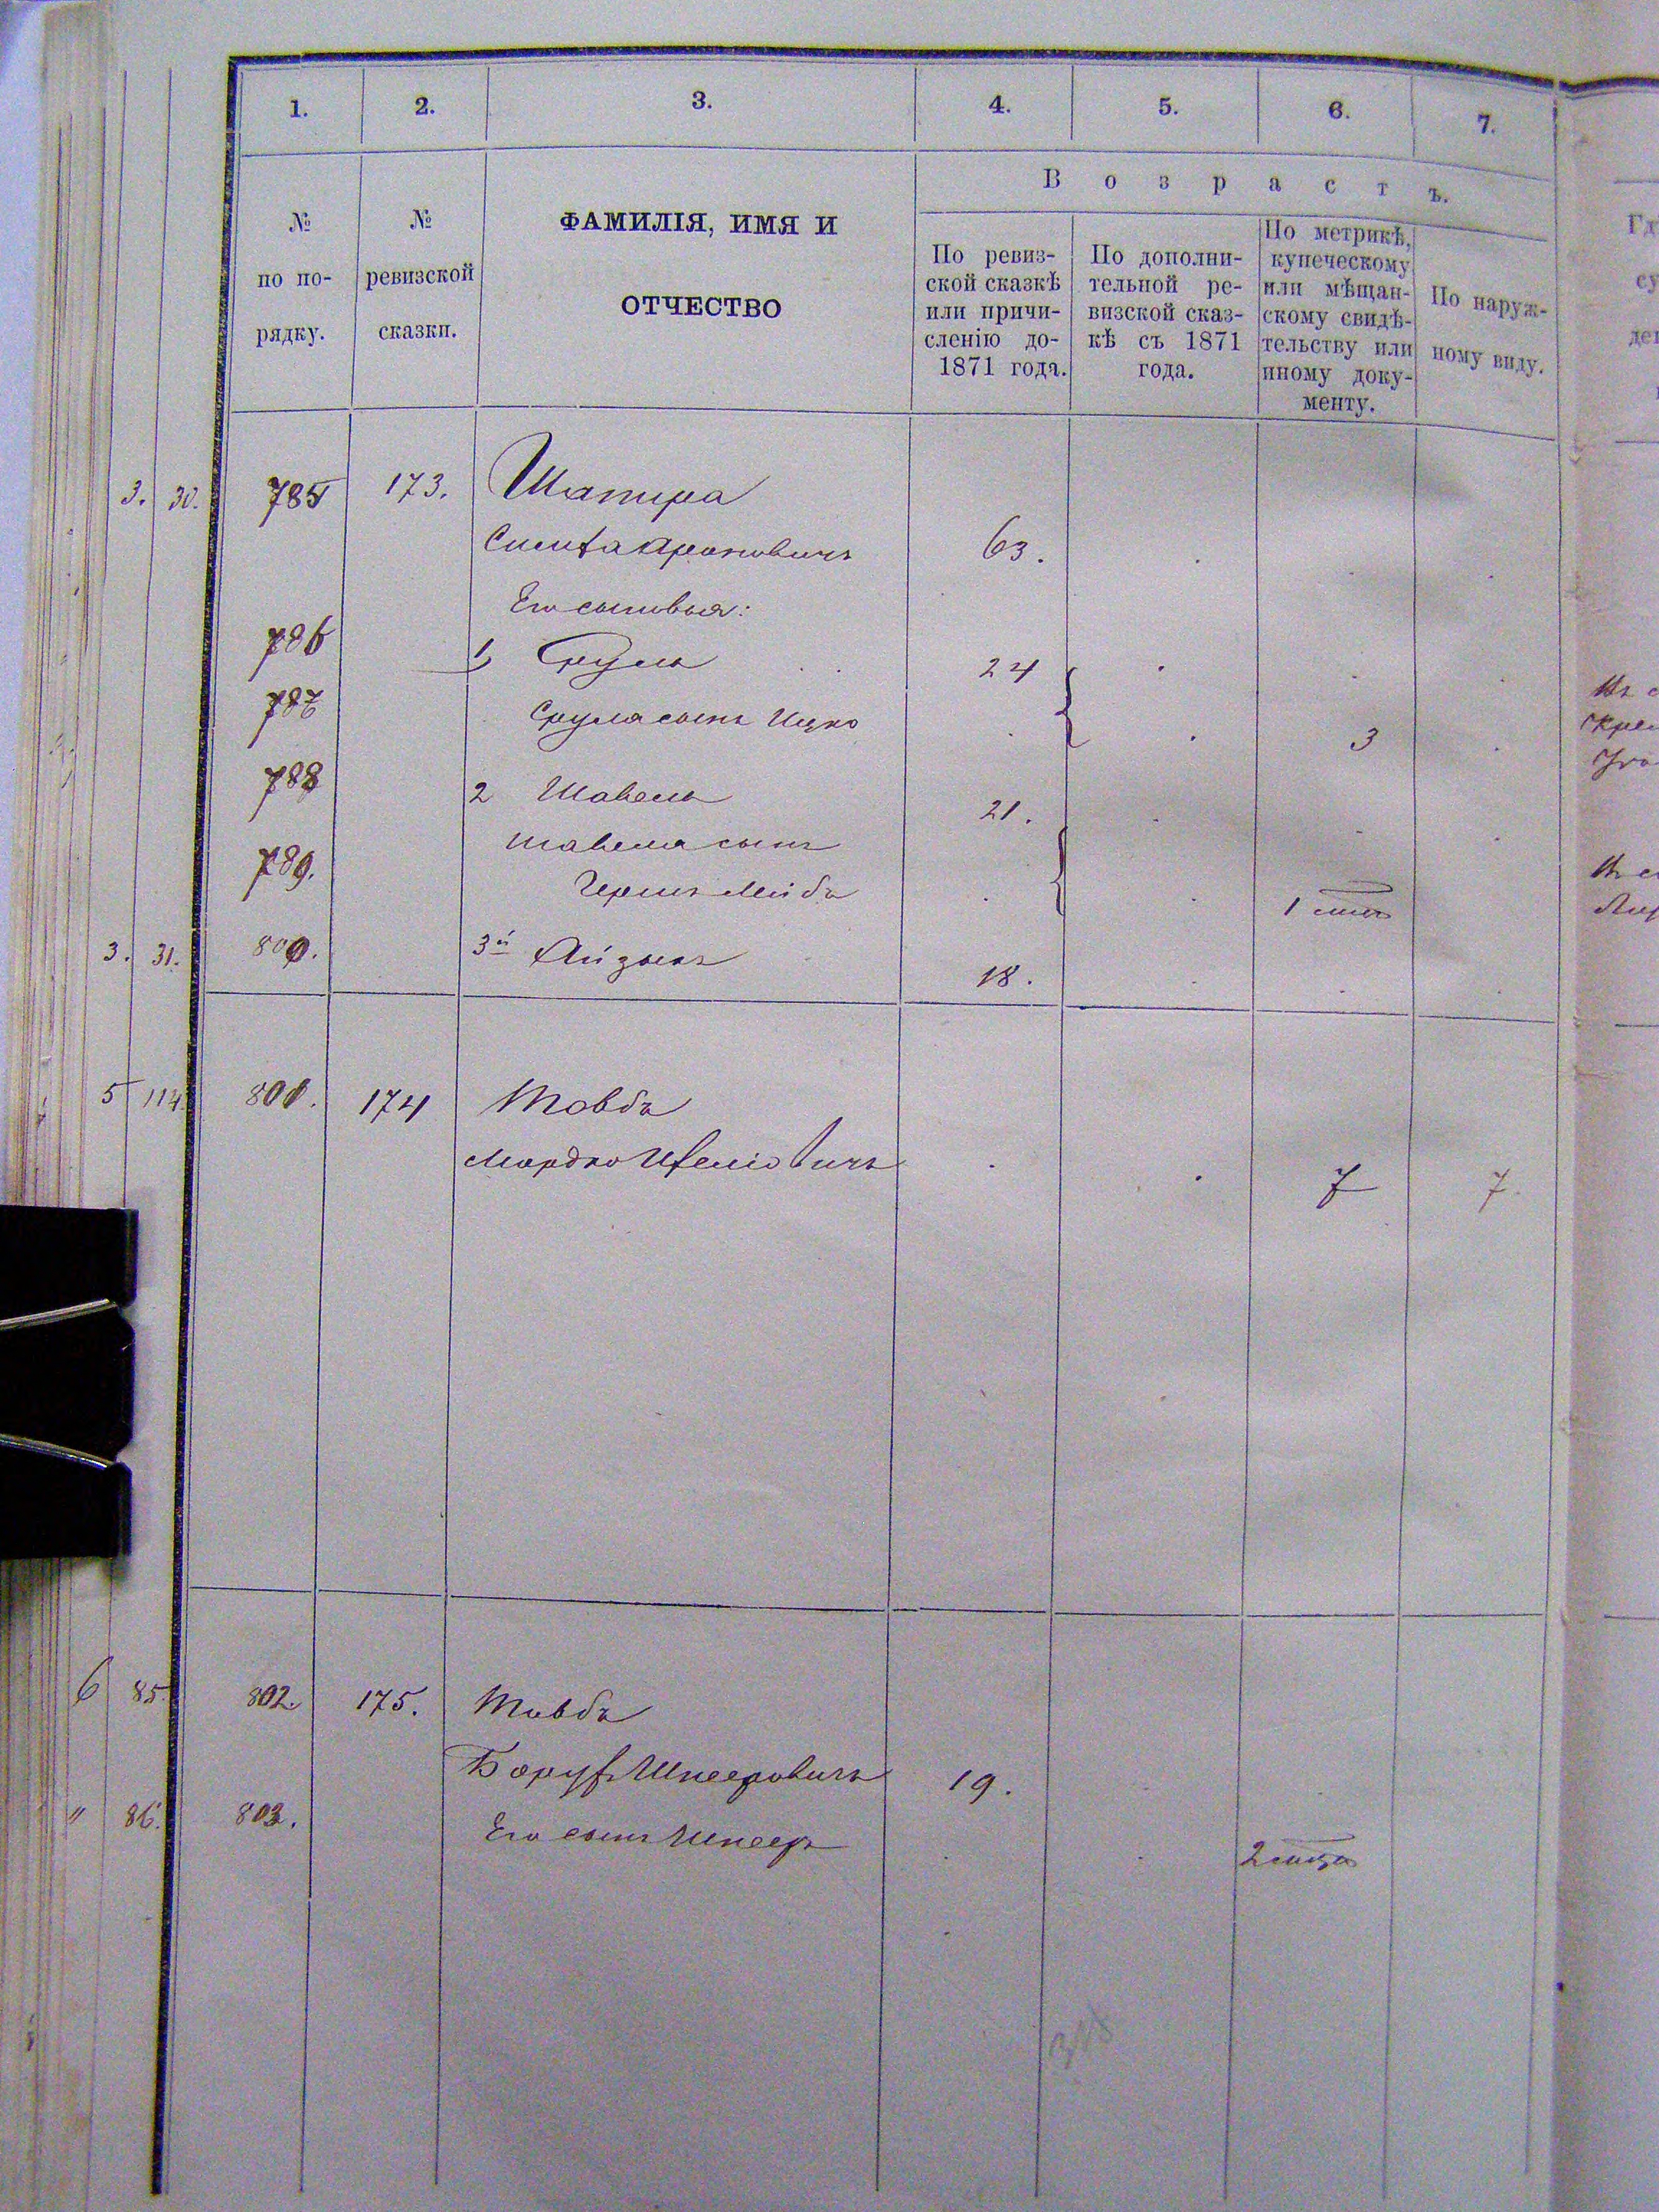 1. 2. 3. 4. 5. 6. 7.
В о з р а с т ъ.
№ по по-рядку.
№ ревизской сказки.
ФАМИЛІЯ, ИМЯ И
ОТЧЕСТВО
По ревиз-
ской сказкѣ
или причи-
сленію до-
1871 года.
По дополни-
тельной ре-
визской сказ-
кѣ съ 1871
года.
По метрикѣ,
купеческому
или мѣщан-
скому свидѣ-
тельству или
иному доку-
менту.
По наруж-
ному виду.
3. 30. 785 173. Шапира
Симха Ароновичъ 63.
Его сыновья:
786 1) Сруль 24
787 Сруля сынъ Ицко 3
788 2 Шавель 21.
789. Шавеля сынъ
Гершъ Лейба 1
3. 31. 800. 3й Айзикъ 18.
5 114. 801. 174 Товбъ
Мордко 7 7.
6 85. 802. 175. Товбъ
Борухъ Шнееровичъ 19.
" 86. 803. Его сынъ Шнееръ 2